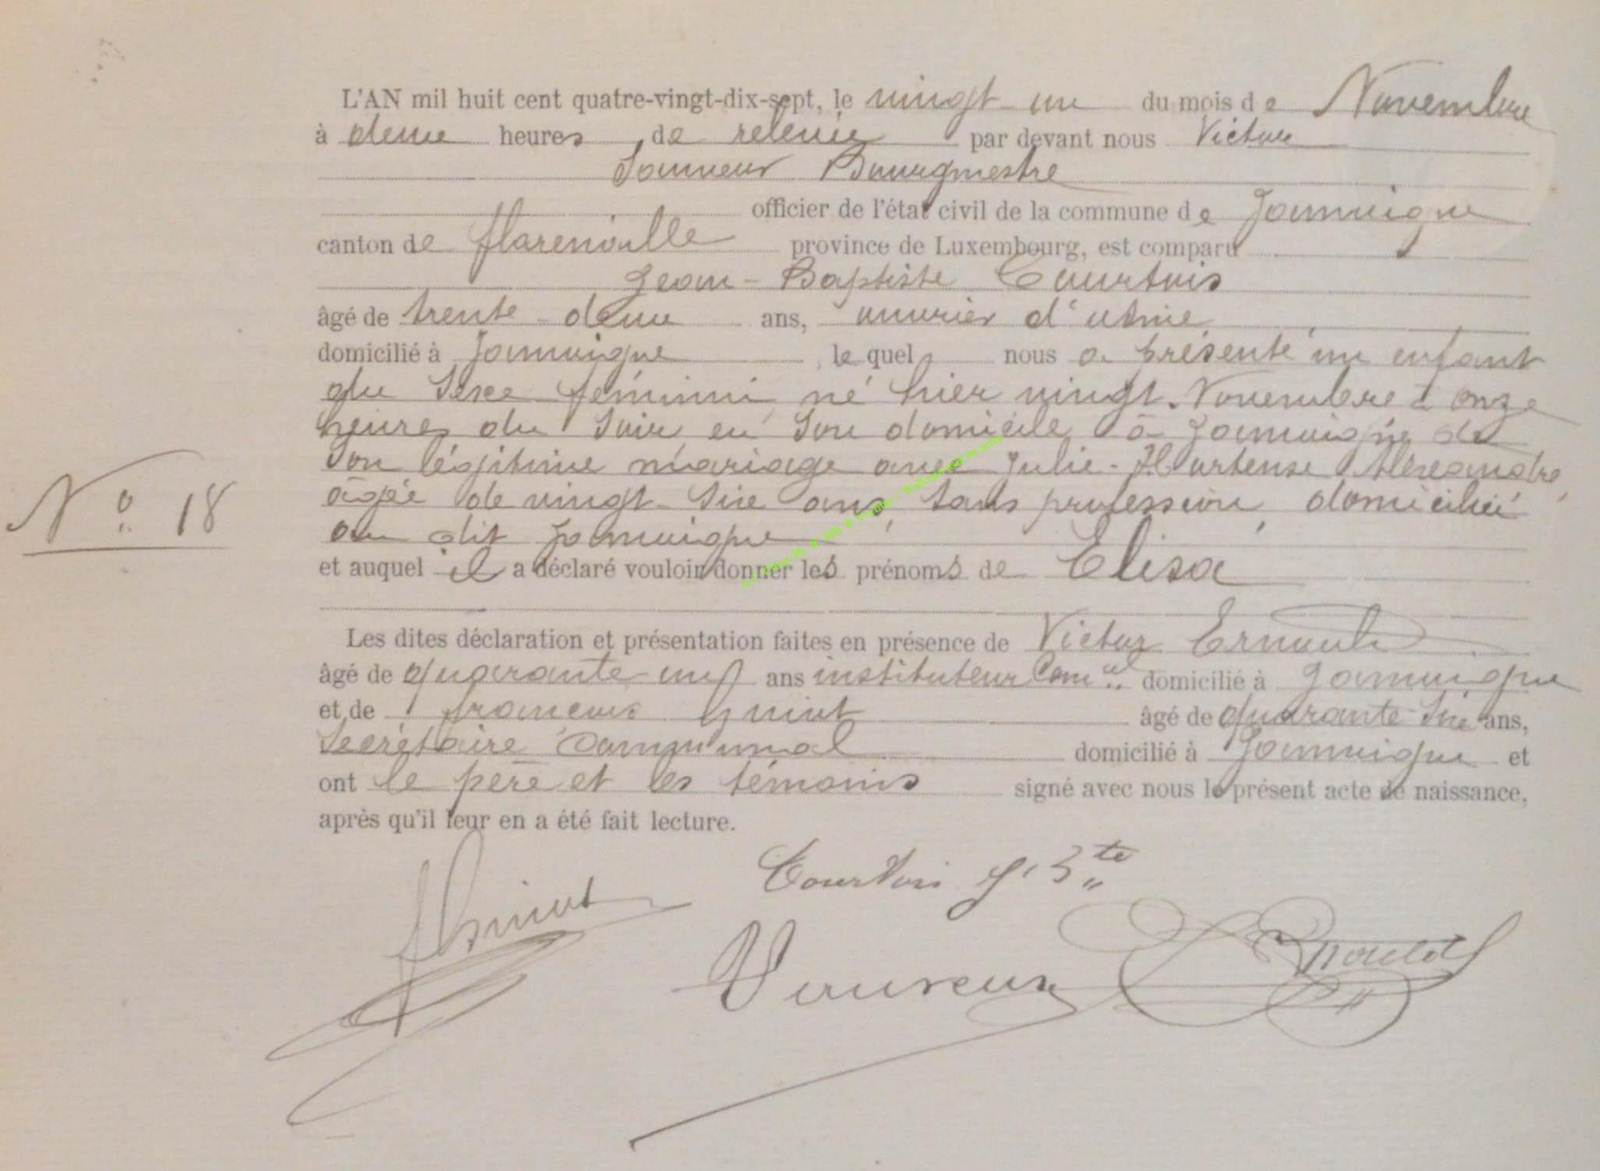 L'AN mil huit cent quatre-vingt-dix-sept, le vingt-un du mois de Novembre
à deux heures, de relevée par devant nous Victor
Bourgmestre
officier de l'état civil de la commune de Jamoigne
canton de Florenville province de Luxembourg, est comparu
Jean-Baptiste Courtois
âgé de trente-deux ans, ouvrier d'usine,
domicilié à Jamoigne, lequel, nous a présenté un enfant
du sexe féminin, né hier vingt-Novembre à onze
heures du soir en son domicile à Jamoigne de
son légitime mariage avec Julie-Hortense Alexandre,
âgée de vingt-six ans, sans profession, domiciliée
au dit Jamoigne
N° 18
et auquel il a déclaré vouloir donner les prénoms de Elisa
Les dites déclaration et présentation faites en présence de Victor
âgé de quarante-un ans instituteur Com.al domicilié à Jamoigne
et de François âgé de quarante-six ans,
Secrétaire Communal domicilié à Jamoigne et
ont le père et les témoins signé avec nous le présent acte de naissance,
après qu'il leur en a été fait lecture.
Courtois J.Bte